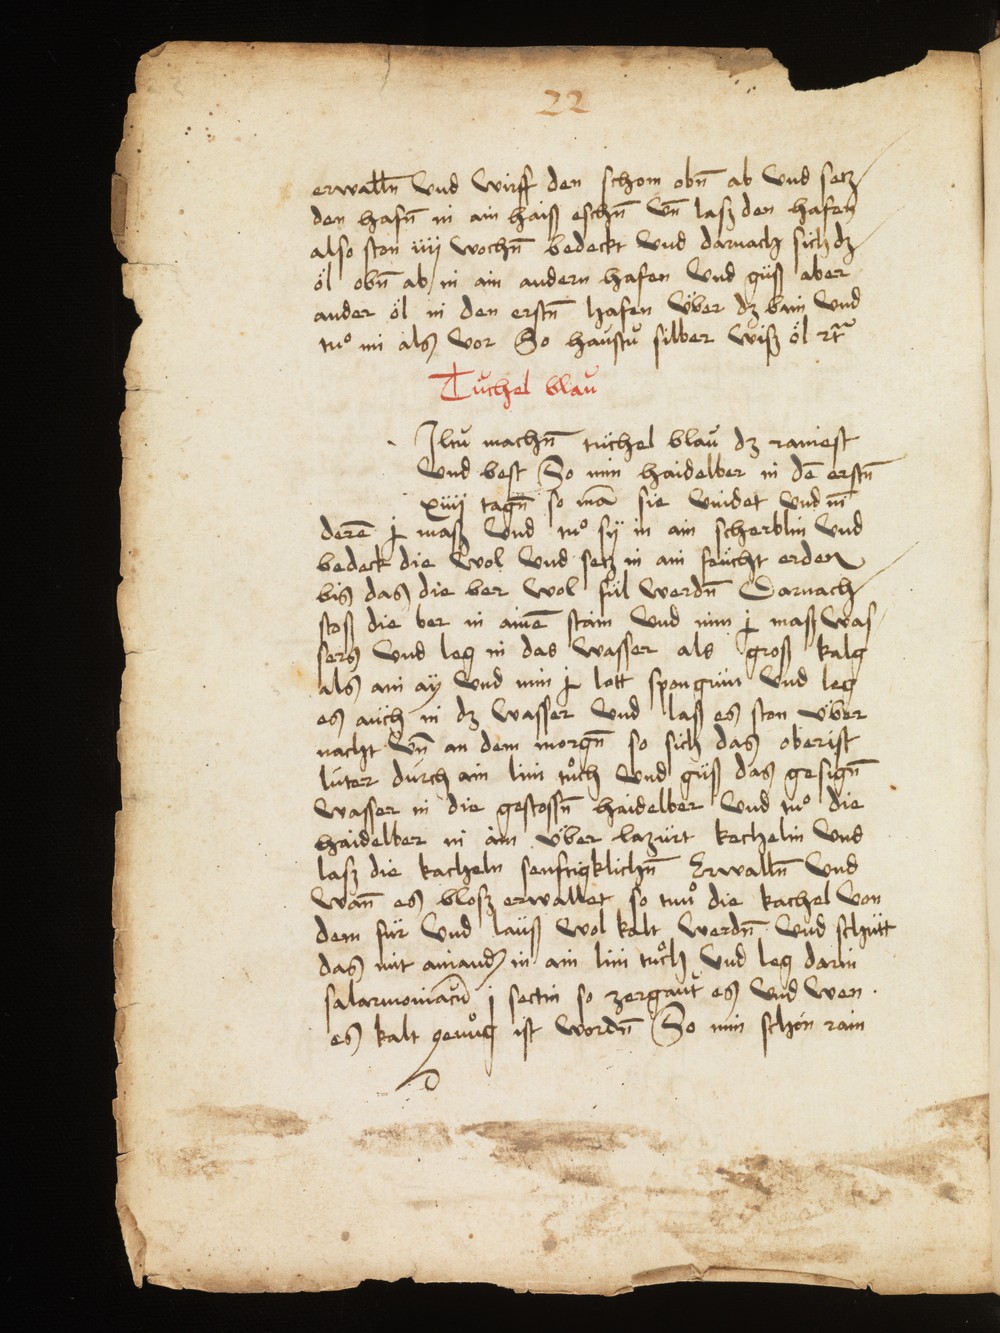 22
erwalln̄ vnd wirff den schom obn̄ ab vnd setz
den hafn̄ in ain haiß eschn̄ vn̄ lasz den hafen
also ston iiij wochn̄ bedeckt vnd darnach sich dz
öl obn̄ ab in ain andern hafen vnd güß aber
ander öl in den erstn̄ hafen v̈ber dz bain vnd
tuͦ im als vor So haustu silber wiß öl
Tuͤchel blau
Iltu machn̄ tüchel blau dz rainest
vnd best So nim haidelber in dē erstn̄
xiiij tagn̄ so mā sie vindet vnd nī
derē j maß vnd tuͦ sÿ in ain scherblin vnd
bedeck die wol vnd setz in ain feücht erden
bis das die ber wol fül werdn̄ Darnach
stoß die ber in ainē stain vnd nim j maß was
sers vnd leg in das wasser als groß kalg
als ain aÿ vnd nim j lott spongrün vnd leg
es auch in dz wasser vnd laß es ston v̈ber
nacht vn̄ an dem morgn̄ so sich das oberist
luter durch ain lini tuͦch vnd güß das gesign̄
wasser in die gestossn̄ haidelber vnd tuͦ die
haidelber in ain v̈ber lazürt kechelin vnd
lasz die kacheln senftigklichn̄ Erwalln̄ vnd
wān es blosz erwallet so tuͦ die kachel von
dem für vnd lauß wol kalt werdn̄ vnd schütt
das mit ainand in ain lini tuͦch vnd leg darin
salarmoniacū j sectin so zergaut es vnd wen
es kalt genuͦg ist wordn̄ So nim schön rain